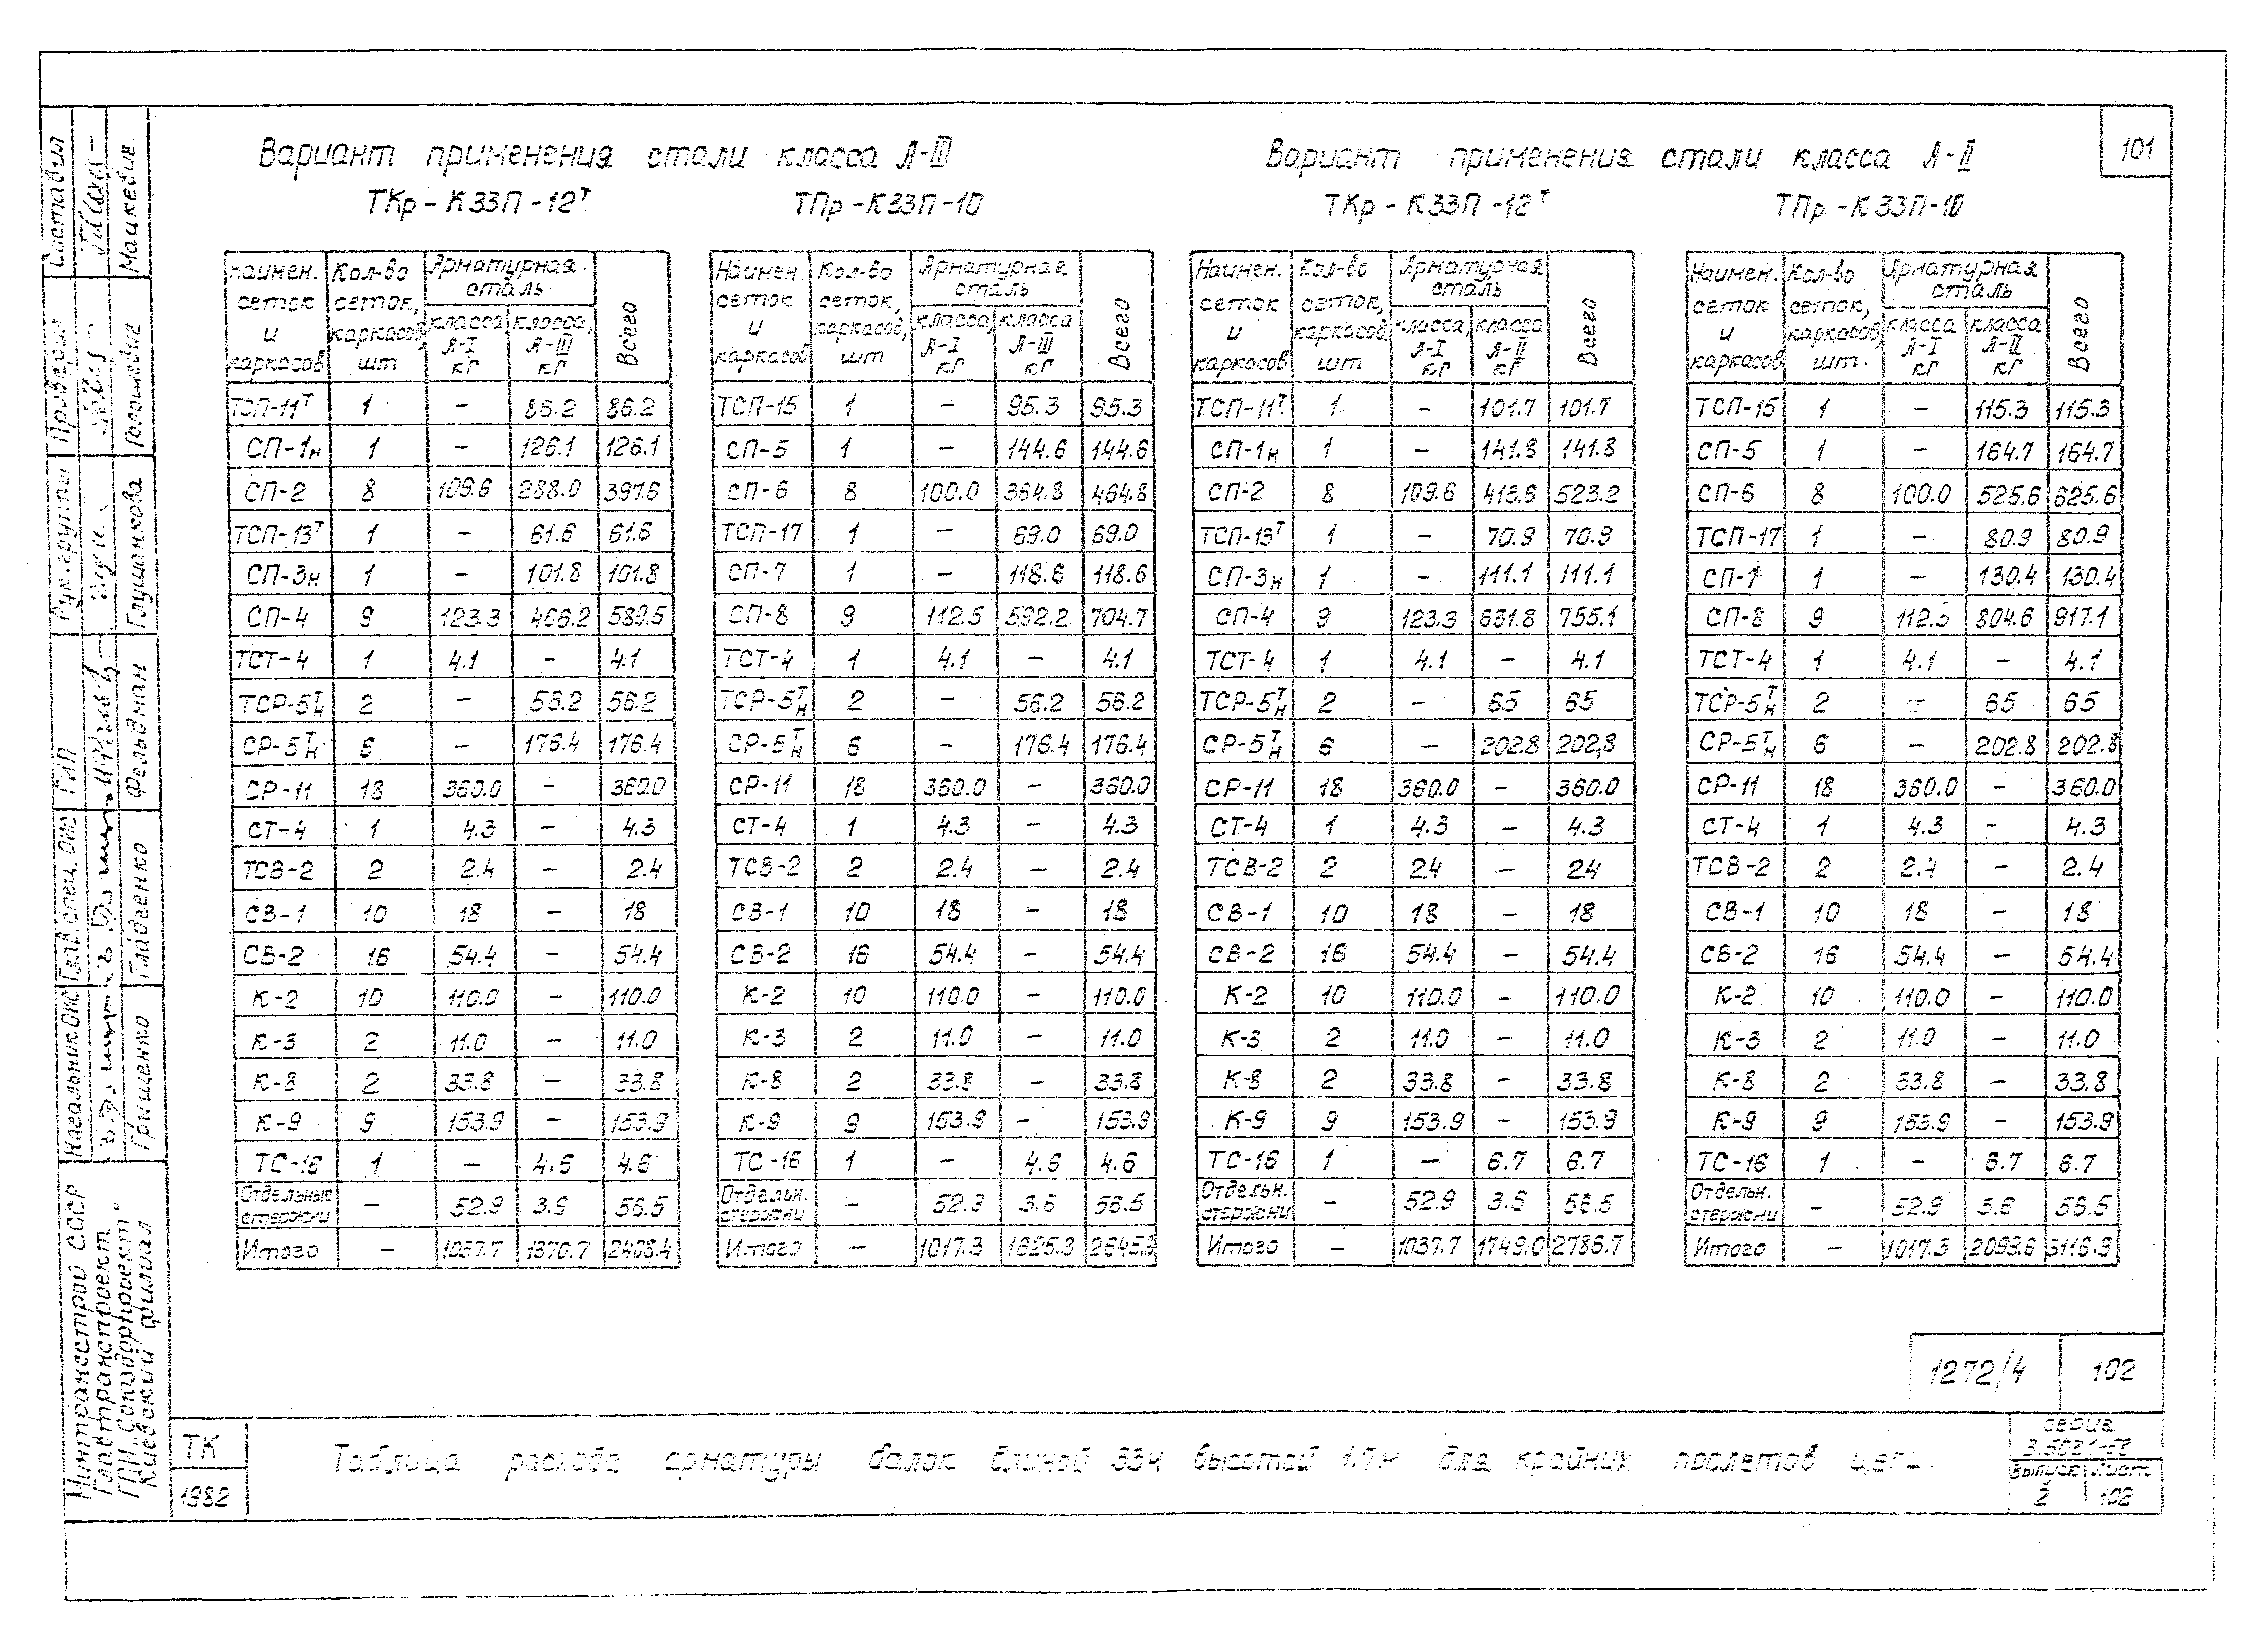 101
Вариант применения стали класса А-III
ТКр-К33П-12Т
ТПр-К33П-10
Вариант применения стали класса А-II
ТКр-К33П-12Т
ТПр-К33П-10
Наимен. сеток и каркасов | Кол-во сеток, каркасов, шт | Арматурная сталь | класса А-I кг | класса, А-III кг | Всего
ТСП-11Т 1 – 86.2 86.2
СП-1н 1 – 126.1 126.1
СП-2 8 109.6 288.0 397.6
ТСП-13Т 1 – 61.6 61.6
СП-3н 1 – 101.8 101.8
СП-4 9 123.3 466.2 589.5
ТСТ-4 1 4.1 – 4.1
ТСР-5Тн 2 – 56.2 56.2
СР-5Тн 6 – 176.4 176.4
СР-11 18 360.0 – 360.0
СТ-4 1 4.3 – 4.3
ТСВ-2 2 2.4 – 2.4
СВ-1 10 18 – 18
СВ-2 16 54.4 – 54.4
К-2 10 110.0 – 110.0
К-3 2 11.0 – 11.0
К-8 2 33.8 – 33.8
К-9 9 153.9 – 153.9
ТС-16 1 – 4.6 4.6
Отдельные стержни – 52.9 3.6 56.5
Итого – 1037.7 1370.7 2408.4
Наимен. сеток и каркасов | Кол-во сеток, каркасов, шт | Арматурная сталь | класса, А-I кг | класса А-III кг | Всего
ТСП-15 1 – 95.3 95.3
СП-5 1 – 144.6 144.6
СП-6 8 100.0 364.8 464.8
ТСП-17 1 – 69.0 69.0
СП-7 1 – 118.6 118.6
СП-8 9 112.5 592.2 704.7
ТСТ-4 1 4.1 – 4.1
ТСР-5Тн 2 – 56.2 56.2
СР-5Тн 6 – 176.4 176.4
СР-11 18 360.0 – 360.0
СТ-4 1 4.3 – 4.3
ТСВ-2 2 2.4 – 2.4
СВ-1 10 18 – 18
СВ-2 16 54.4 – 54.4
К-2 10 110.0 – 110.0
К-3 2 11.0 – 11.0
К-8 2 33.8 – 33.8
К-9 9 153.9 – 153.9
ТС-16 1 – 4.6 4.6
Отдельн. стержни – 52.9 3.6 56.5
Итого – 1017.3
Наимен. сеток и каркасов | Кол-во сеток, каркасов, шт | Арматурная сталь | класса А-I кг | класса А-II кг | Всего
ТСП-11Т 1 – 101.7 101.7
СП-1н 1 – 141.8 141.8
СП-2 8 109.6 413.6 523.2
ТСП-13Т 1 – 70.9 70.9
СП-3н 1 – 111.1 111.1
СП-4 9 123.3 631.8 755.1
ТСТ-4 1 4.1 – 4.1
ТСР-5Тн 2 – 65 65
СР-5Тн 6 – 202.8 202,8
СР-11 18 360.0 – 360.0
СТ-4 1 4.3 – 4.3
ТСВ-2 2 2.4 – 2.4
СВ-1 10 18 – 18
СВ-2 16 54.4 – 54.4
К-2 10 110.0 – 110.0
К-3 2 11.0 – 11.0
К-8 2 33.8 – 33.8
К-9 9 153.9 – 153.9
ТС-16 1 – 6.7 6.7
Отдельн. стержни – 52.9 3.6 56.5
Итого – 1037.7 1749.0 2786.7
Наимен. сеток и каркасов | Кол-во сеток, каркасов, шт. | Арматурная сталь | класса А-I кг | класса А-II кг | Всего
ТСП-15 1 – 115.3 115.3
СП-5 1 – 164.7 164.7
СП-6 8 100.0 525.6 625.6
ТСП-17 1 – 80.9 80.9
СП-7 1 – 130.4 130.4
СП-8 9 112.5 804.6 917.1
ТСТ-4 1 4.1 – 4.1
ТСР-5Тн 2 – 65 65
СР-5Тн 6 – 202.8 202.8
СР-11 18 360.0 – 360.0
СТ-4 1 4.3 – 4.3
ТСВ-2 2 2.4 – 2.4
СВ-1 10 18 – 18
СВ-2 16 54.4 – 54.4
К-2 10 110.0 – 110.0
К-3 2 11.0 – 11.0
К-8 2 33.8 – 33.8
К-9 9 153.9 – 153.9
ТС-16 1 – 6.7 6.7
Отдельн. стержни – 52.9 3.6 56.5
Итого – 1017.3 2099.6 3116.9
1272/4 102
ТК
1982
Таблица расхода арматуры балок длиной 33м высотой 1.7м для крайних пролетов
серия
выпуск лист
2 102
Составил Мацкевич
Проверил Голошевич
Рук.группы Глушакова
ГИП Фельдман
Глав.спец.ОИС Гладченко
Начальник ОИС Грищенко
Минтрансстрой СССР
Главтранспроект
ГПИ „Союздорпроект"
Киевский филиал